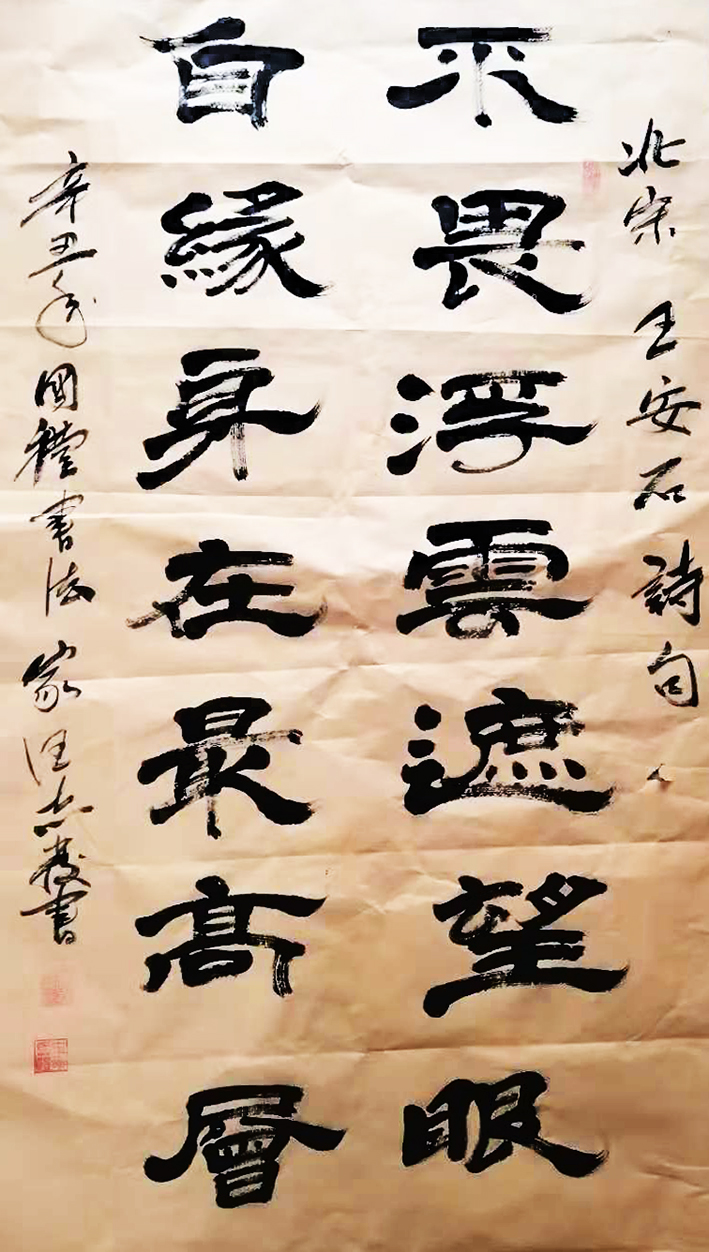 北宋 王安石詩句
不畏浮雲遮望眼
自緣身在最高層
辛丑年國禮書法家汪志發書